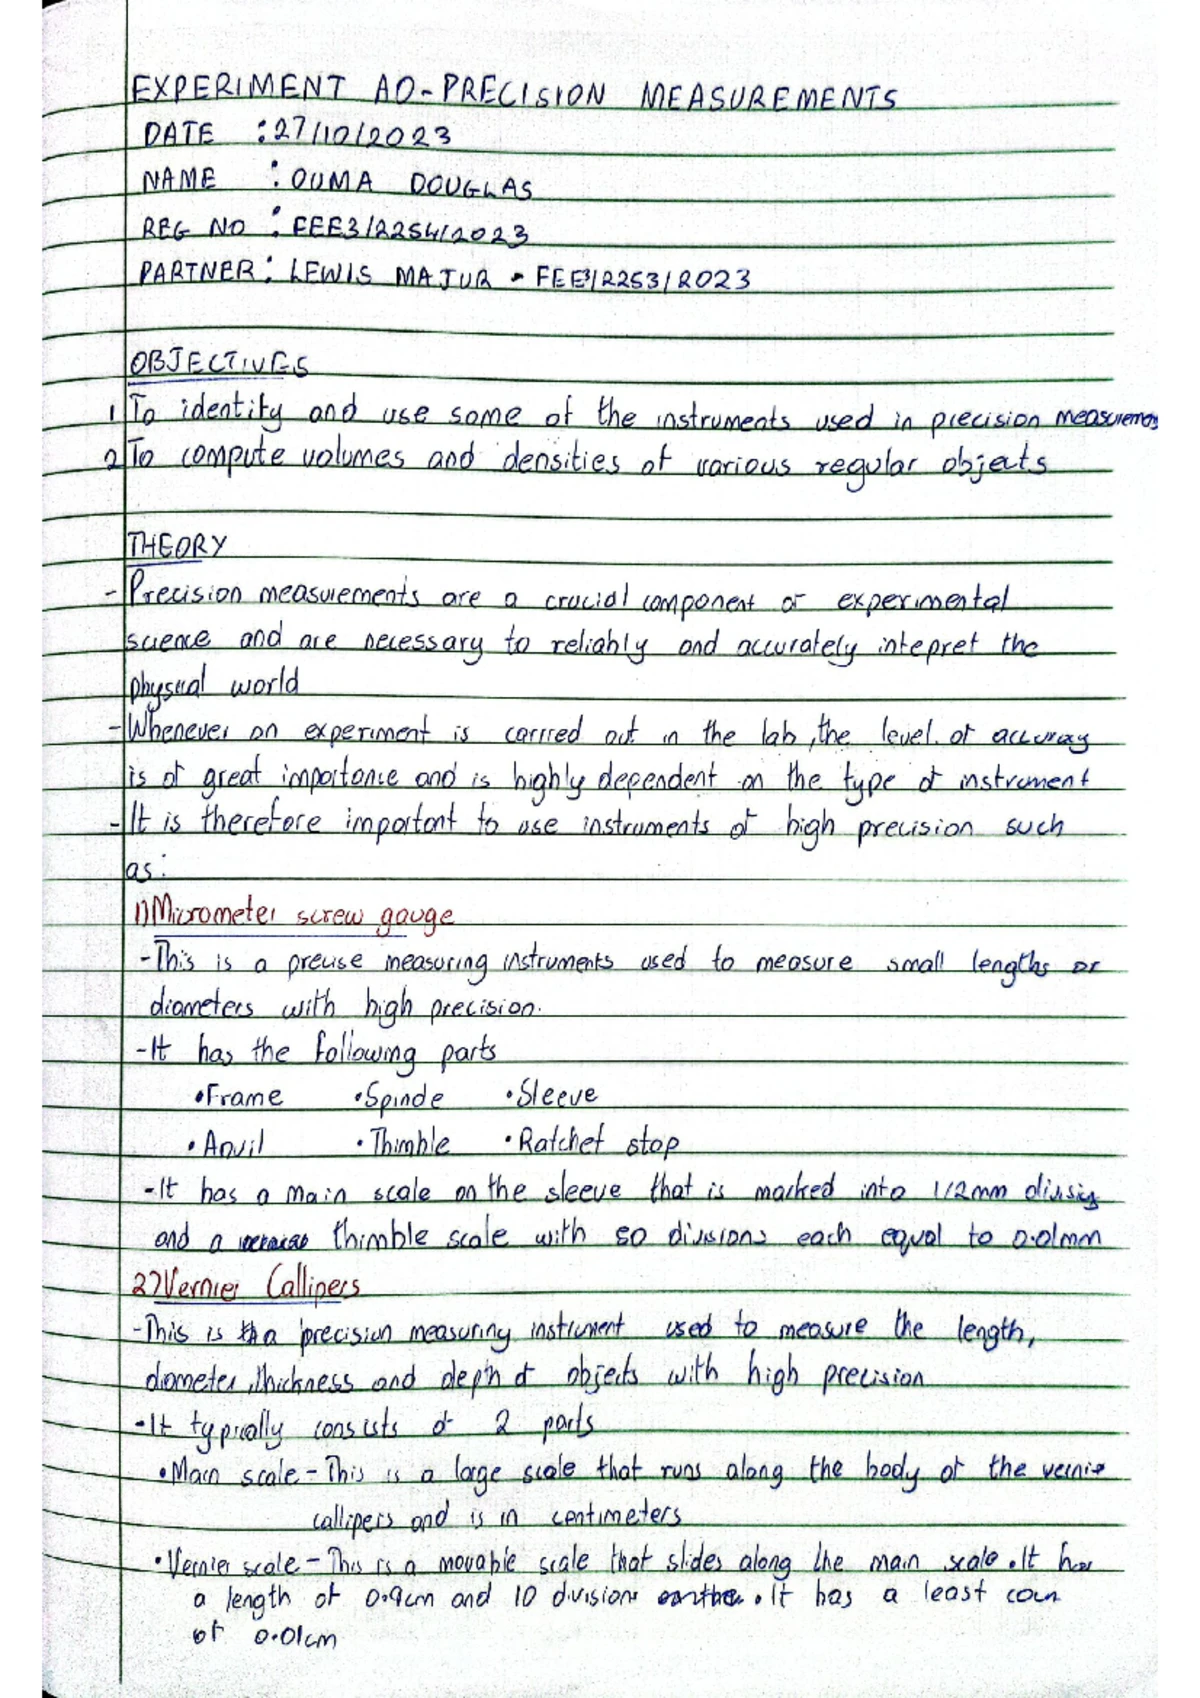 EXPERIMENT AO-PRECISION MEASUREMENTS
DATE : 27/10/2023
NAME : OUMA DOUGLAS
REG NO : FEE3/2254/2023
PARTNER : LEWIS MAJUR - FEE3/2253/2023
OBJECTIVES
1. To identify and use some of the instruments used in precision measurements
2. To compute volumes and densities of various regular objects
THEORY
- Precision measurements are a crucial component of experimental
science and are necessary to reliably and accurately intepret the
physical world
- Whenever an experiment is carried out in the lab, the level of accuracy
is of great importance and is highly dependent on the type of instrument
- It is therefore important to use instruments of high precision such
as:
1) Micrometer screw gauge
- This is a precise measuring instruments used to measure small lengths or
diameters with high precision.
- It has the following parts
• Frame • Spinde • Sleeve
• Anvil • Thimble • Ratchet stop
- It has a main scale on the sleeve that is marked into 1/2mm
and a thimble scale with 50 divisions each equal to 0.01mm
2) Vernier Callipers
- This is a precision measuring instrument used to measure the length,
diameter, thickness and depth of objects with high precision
- It typically consists of 2 parts
• Main scale - This is a large scale that runs along the body of the vernie
callipers and is in centimeters
• Vernier scale - This is a movable scale that slides along the main scale. It has
a length of 0.9cm and 10 divisions . It has a least coun
of 0.01cm